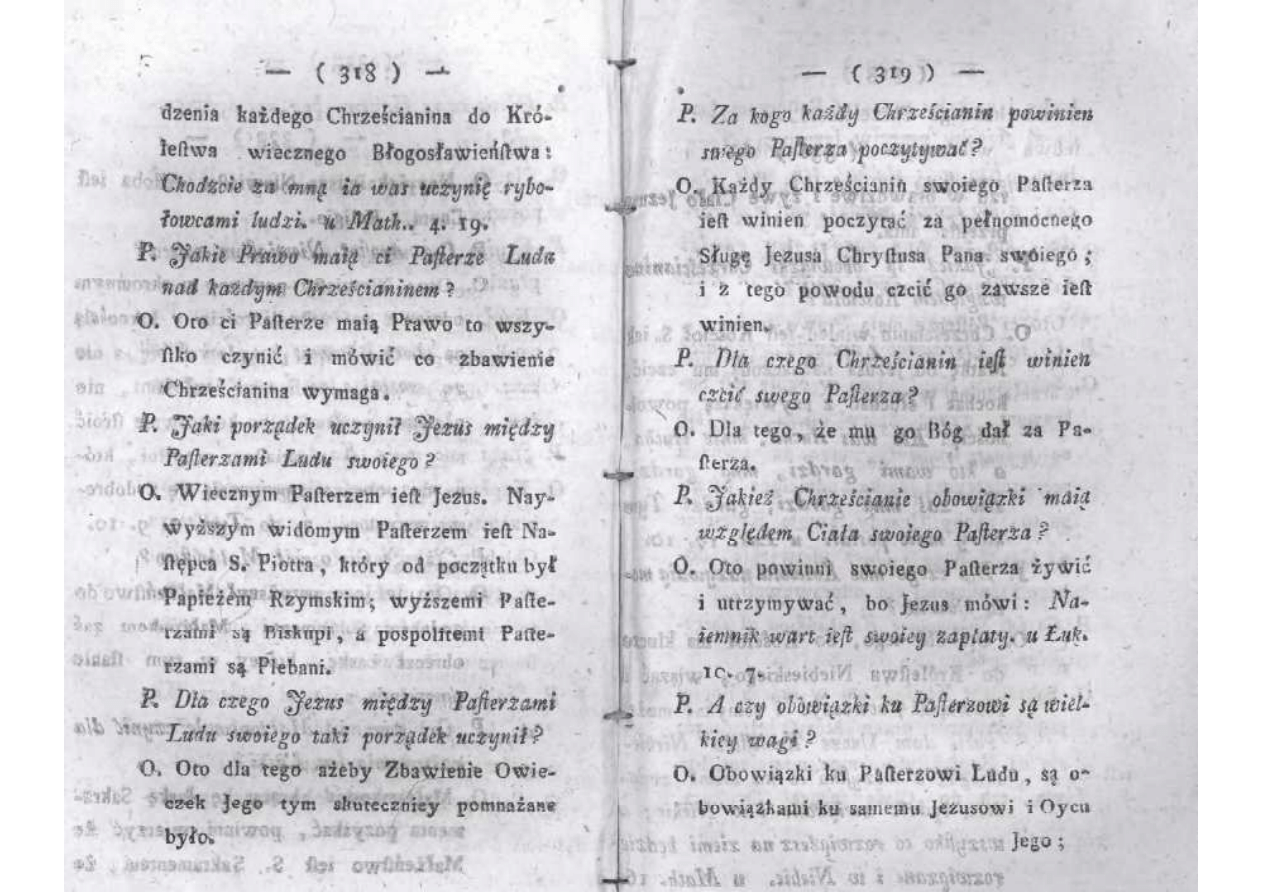 — ( 318 ) —
dzenia każdego Chrześcianina do Kró-
leſtwa wiecznego Błogosławieńſtwa:
Chodzcie za mną ia was uczynię rybo-
łowcami ludzi. u Math.. 4. 19.
P. Jakie Prawo maią ci Paſterze Ludu
nad każdym Chrześcianinem?
O. Oto ci Paſterze maią Prawo to wszy-
ſtko czynić i mówić co zbawienie
Chrześcianina wymaga.
P. Jaki porządek uczynił Jezus między
Paſterzami Ludu swoiego?
O. Wiecznym Paſterzem ieſt Jezus. Nay-
wyższym widomym Paſterzem ieſt Na-
ſtępca S. Piotra, który od początku był
Papieżem Rzymskim; wyższemi Paſte-
rzami są Biskupi, a pospolitemi Paſte-
rzami są Plebani.
P. Dla czego Jezus między Paſterzami
Ludu swoiego taki porządek uczynił?
O. Oto dla tego ażeby Zbawienie Owie-
czek Jego tym skuteczniey pomnażane
było.
— ( 319 ) —
P. Za kogo każdy Chrześcianin powinien
swego Paſterza poczytywać?
O. Każdy Chrześcianin swoiego Paſterza
ieſt winien poczytać za pełnomocnego
Sługę Jezusa Chryſtusa Pana swóiego;
i z tego powodu czcić go zawsze ieſt
winien.
P. Dla czego Chrześcianin ieſt winien
czcić swego Paſterza?
O. Dla tego, że mu go Bóg dał za Pa-
ſterza.
P. Jakież Chrześcianie obowiązki maią
względem Ciała swoiego Paſterza?
O. Oto powinni swoiego Paſterza żywić
i utrzymywać, bo Jezus mówi: Na-
iemnik wart ieſt swoiey zapłaty. u Łuk.
10. 7.
P. A czy obowiązki ku Paſterzowi są wiel-
kiey wagi?
O. Obowiązki ku Paſterzowi Ludu, są o-
bowiązkami ku samemu Jezusowi i Oycu
Jego;